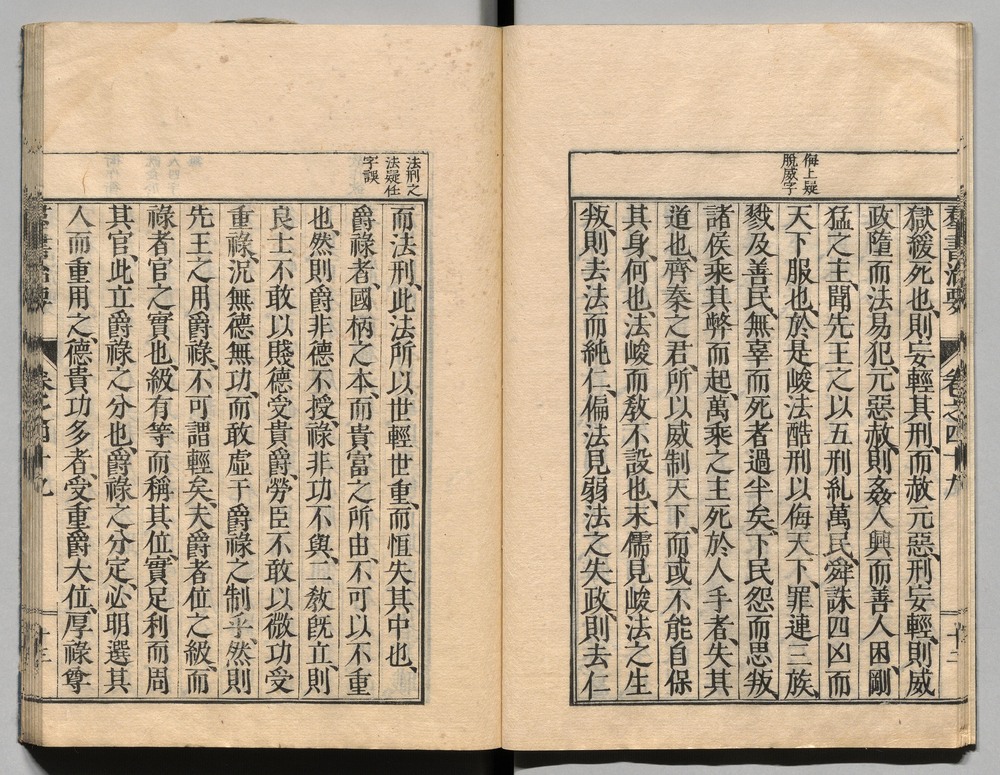 群書治要
卷之四十九
十三
侮上疑
脫威字
獄緩死也則妄輕其刑而赦元惡刑妄輕則威
政墮而法易犯元惡赦則姦人興而善人困剛
猛之主聞先王之以五刑糺萬民舜誅四凶而
天下服也於是峻法酷刑以侮天下罪連三族
戮及善民無辜而死者過半矣下民怨而思叛
諸侯乘其弊而起萬乘之主死於人手者失其
道也齊秦之君所以威制天下而或不能自保
其身何也法峻而教不設也末儒見峻法之生
叛則去法而純仁偏法見弱法之失政則去仁
法刑之
法疑任
字誤
而法刑此法所以世輕世重而恒失其中也
爵祿者國柄之本而貴富之所由不可以不重
也然則爵非德不授祿非功不與二教既立則
良士不敢以賤德受貴爵勞臣不敢以微功受
重祿況無德無功而敢虛干爵祿之制乎然則
先王之用爵祿不可謂輕矣夫爵者位之級而
祿者官之實也級有等而稱其位實足利而周
其官此立爵祿之分也爵祿之分定必明選其
人而重用之德貴功多者受重爵大位厚祿尊
群書治要
卷之四十九
十三